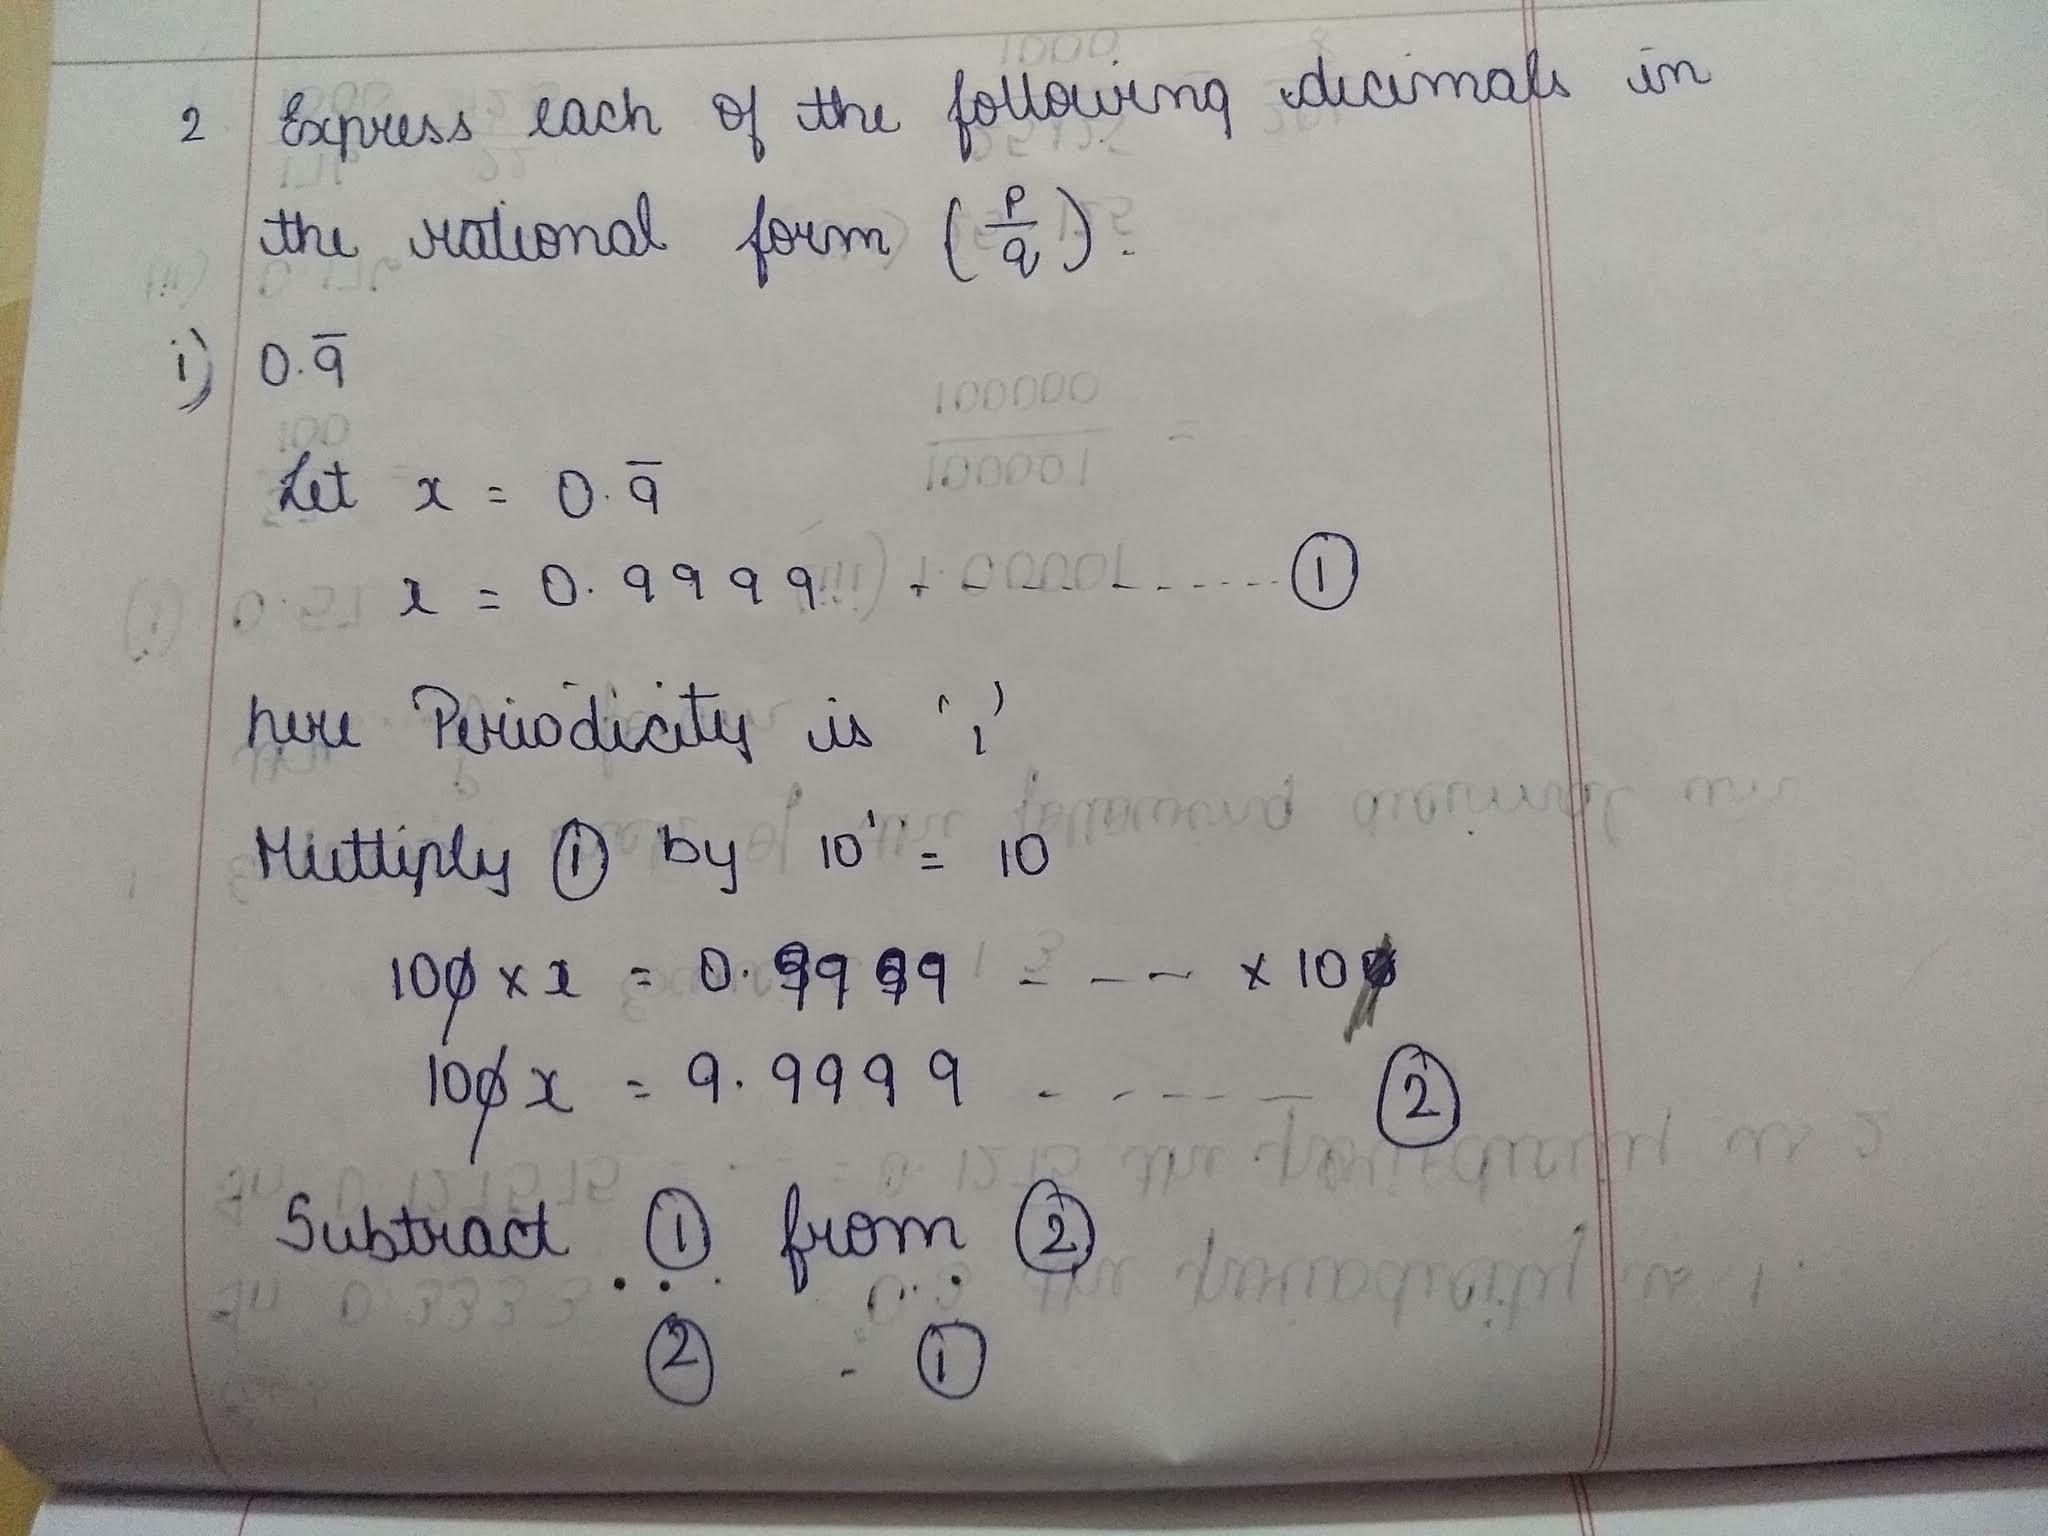 2 Express each of the following decimals in
the rational form (p/q).
i) 0.9̅
Let x = 0.9̅
x = 0.9999 - - - - - ...... ①
here Periodicity is '1'
Multiply ① by 10¹ = 10
10 × x = 0.9999 - - - × 10
10 x = 9.9999 - - - - - - ②
Subtract ① from ②
② - ①